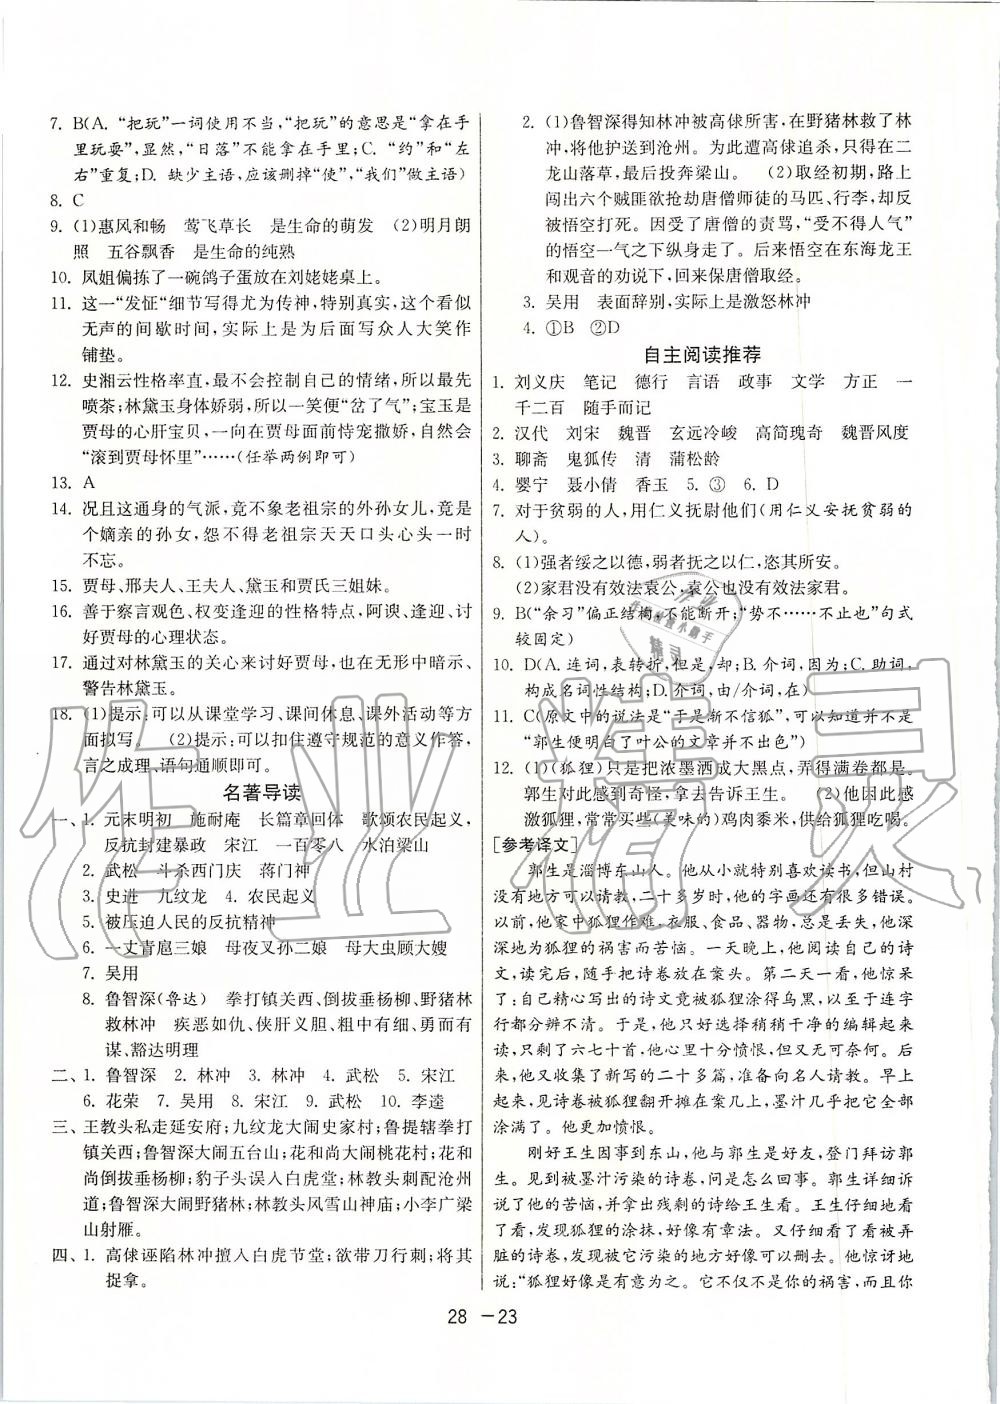 7. B(A. “把玩”一词使用不当,“把玩”的意思是“拿在手
里玩耍”,显然,“日落”不能拿在手里;C. “约”和“左
右”重复;D. 缺少主语,应该删掉“使”,“我们”做主语)
8. C
9. (1)惠风和畅 莺飞草长 是生命的萌发 (2)明月朗
照 五谷飘香 是生命的纯熟
10. 凤姐偏拣了一碗鸽子蛋放在刘姥姥桌上。
11. 这一“发怔”细节写得尤为传神,特别真实,这个看似
无声的间歇时间,实际上是为后面写众人大笑作
铺垫。
12. 史湘云性格率直,最不会控制自己的情绪,所以最先
喷茶;林黛玉身体娇弱,所以一笑便“岔了气”;宝玉是
贾母的心肝宝贝,一向在贾母面前恃宠撒娇,自然会
“滚到贾母怀里”……(任举两例即可)
13. A
14. 况且这通身的气派,竟不象老祖宗的外孙女儿,竟是
个嫡亲的孙女,怨不得老祖宗天天口头心头一时
不忘。
15. 贾母、邢夫人、王夫人、黛玉和贾氏三姐妹。
16. 善于察言观色、权变逢迎的性格特点,阿谀、逢迎、讨
好贾母的心理状态。
17. 通过对林黛玉的关心来讨好贾母,也在无形中暗示、
警告林黛玉。
18. (1)提示:可以从课堂学习、课间休息、课外活动等方
面拟写。 (2)提示:可以扣住遵守规范的意义作答,
言之成理、语句通顺即可。
名著导读
一、1. 元末明初 施耐庵 长篇章回体 歌颂农民起义,
反抗封建暴政 宋江 一百零八 水泊梁山
2. 武松 斗杀西门庆 蒋门神
3. 史进 九纹龙 4. 农民起义
5. 被压迫人民的反抗精神
6. 一丈青扈三娘 母夜叉孙二娘 母大虫顾大嫂
7. 吴用
8. 鲁智深(鲁达) 拳打镇关西、倒拔垂杨柳、野猪林
救林冲 疾恶如仇、侠肝义胆、粗中有细、勇而有
谋、豁达明理
二、1. 鲁智深 2. 林冲 3. 林冲 4. 武松 5. 宋江
6. 花荣 7. 吴用 8. 宋江 9. 武松 10. 李逵
三、王教头私走延安府;九纹龙大闹史家村;鲁提辖拳打
镇关西;鲁智深大闹五台山;花和尚大闹桃花村;花和
尚倒拔垂杨柳;豹子头误入白虎堂;林教头刺配沧州
道;鲁智深大闹野猪林;林教头风雪山神庙;小李广梁
山射雁。
四、1. 高俅诬陷林冲擅入白虎节堂;欲带刀行刺;将其
捉拿。
2. (1)鲁智深得知林冲被高俅所害,在野猪林救了林
冲,将他护送到沧州。为此遭高俅追杀,只得在二
龙山落草,最后投奔梁山。 (2)取经初期,路上
闯出六个贼匪欲抢劫唐僧师徒的马匹、行李,却反
被悟空打死。因受了唐僧的责骂,“受不得人气”
的悟空一气之下纵身走了。后来悟空在东海龙王
和观音的劝说下,回来保唐僧取经。
3. 吴用 表面辞别,实际上是激怒林冲
4. ①B ②D
自主阅读推荐
1. 刘义庆 笔记 德行 言语 政事 文学 方正 一
千二百 随手而记
2. 汉代 刘宋 魏晋 玄远冷峻 高简瑰奇 魏晋风度
3. 聊斋 鬼狐传 清 蒲松龄
4. 婴宁 聂小倩 香玉 5. ③ 6. D
7. 对于贫弱的人,用仁义抚尉他们(用仁义安抚贫弱的
人)。
8. (1)强者绥之以德,弱者抚之以仁,恣其所安。
(2)家君没有效法袁公,袁公也没有效法家君。
9. B(“余习”偏正结构,不能断开;“势不……不止也”句式
较固定)
10. D(A. 连词,表转折,但是,却;B. 介词,因为;C. 助词,
构成名词性结构;D. 介词,由/介词,在)
11. C(原文中的说法是“于是渐不信狐”,可以知道并不是
“郭生便明白了叶公的文章并不出色”)
12. (1)(狐狸)只是把浓墨洒成大黑点,弄得满卷都是。
郭生对此感到奇怪,拿去告诉王生。 (2)因此感
激狐狸,常常买些(美味的)鸡肉黍米,供给狐狸吃喝。
[参考译文]
郭生是淄博东山人。他从小就特别喜欢读书,但山村
没有地方可以请教,二十多岁时,他的字画还有很多错误。
以前,他家中狐狸作难,衣服、食品、器物,总是丢失,他深
深地为狐狸的祸害而苦恼。一天晚上,他阅读自己的诗
文,读完后,随手把诗卷放在案头。第二天一看,他惊呆
了:自己精心写出的诗文竟被狐狸涂得乌黑,以至于连字
行都分辨不清。于是,他只好选择稍稍干净的编辑起来
读,只剩了六七十首,他心里十分愤恨,但又无可奈何。后
来,他又收集了新写的二十多篇,准备向名人请教。早上
起来,见诗卷被狐狸翻开摊在案几上,墨汁几乎把它全部
涂满了。他更加愤恨。
刚好王生因事到东山,他与郭生是好友,登门拜访郭
生。见到被墨汁污染的诗卷,问是怎么回事。郭生详细诉
说了他的苦恼,并拿出残剩的诗给王生看。王生仔细地看
了看,发现狐狸的涂抹,好像有章法。又仔细看了看被弄
脏的诗卷,发现被它污染的地方好像可以删去。他惊讶地
说:“狐狸好像是有意为之。它不仅不是你的祸害,而且你
28 －23
作业精灵